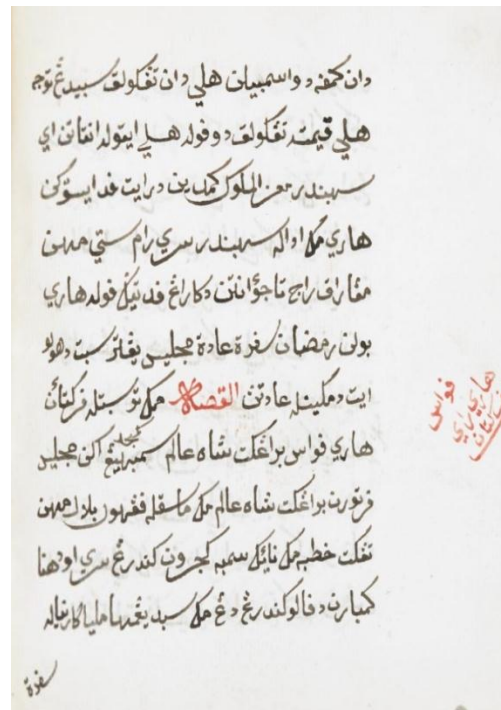 دان كمڤه دواسمبيلن هلي دان تڠكولق سبيدڠ توجه
هلي قيمة تڠكولق دوڤوله هلي ايتوله اڠاتن اي
سهبندر معز الملوك كمدين درايت ڤد ايسوقكن
هاري مك اداله سهبندر سري رام ستي
مڠارق راج تاجؤ انتن دكارڠ ڤد تيڬ ڤوله هاري
بولن رمضان سڤرة عادة مجليس يڠتر سبت دهولو
ايت دمكينله عادتن القصه مك ترسبتله ڤركتأن
هاري ڤواس براڠكت شاه عالم سمبهيڠ كن مجليس
ڤرتورن براڠكت شاه عالم مك ماسقله ڤڠهولو بلال
تڠكت خطب مك نايك سمبه كجرون كندرڠ سري اودهنا
كمبارن دڤالو كندرڠ دڠ مك سبد يڠمهاملياكارڽاله
سڤرة
ڤواس
هاري راي